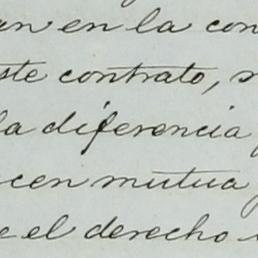 an en la con
ste contrato,
la diferencia
cen mutua
e el derecho